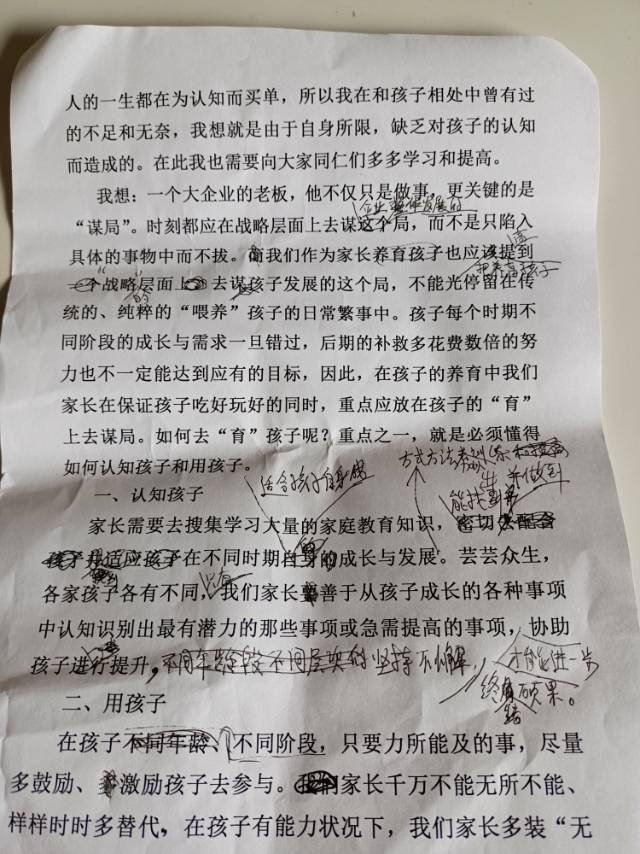 人的一生都在为认知而买单，所以我在和孩子相处中曾有过
的不足和无奈，我想就是由于自身所限，缺乏对孩子的认知
而造成的。在此我也需要向大家同仁们多多学习和提高。
我想：一个大企业的老板，他不仅只是做事，更关键的是
企业整体发展的
“谋局”。时刻都应在战略层面上去谋这个局，而不是只陷入
具体的事物中而不拔。而我们作为家长养育孩子也应该提到
把养育孩子
一个“战略”层面上 去谋孩子发展的这个局，不能光停留在传
的
统的、纯粹的“喂养”孩子的日常繁事中。孩子每个时期不
同阶段的成长与需求一旦错过，后期的补救多花费数倍的努
力也不一定能达到应有的目标，因此，在孩子的养育中我们
家长在保证孩子吃好玩好的同时，重点应放在孩子的“育”
上去谋局。如何去“育”孩子呢？重点之一，就是必须懂得
如何认知孩子和用孩子。
适合孩子自身成
方式方法
并做到
能找到
一、认知孩子
家长需要去搜集学习大量的家庭教育知识，密切去配合
孩子并适应孩子在不同时期自身的成长与发展。芸芸众生，
只有
各家孩子各有不同，我们家长要善于从孩子成长的各种事项
中认知识别出最有潜力的那些事项或急需提高的事项，协助
孩子进行提升，不同年龄段不同层次的坚持不懈，才能进一步
终结硕果。
二、用孩子
在孩子不同年龄、不同阶段，只要力所能及的事，尽量
多鼓励、多激励孩子去参与。我们家长千万不能无所不能、
样样时时多替代，在孩子有能力状况下，我们家长多装“无